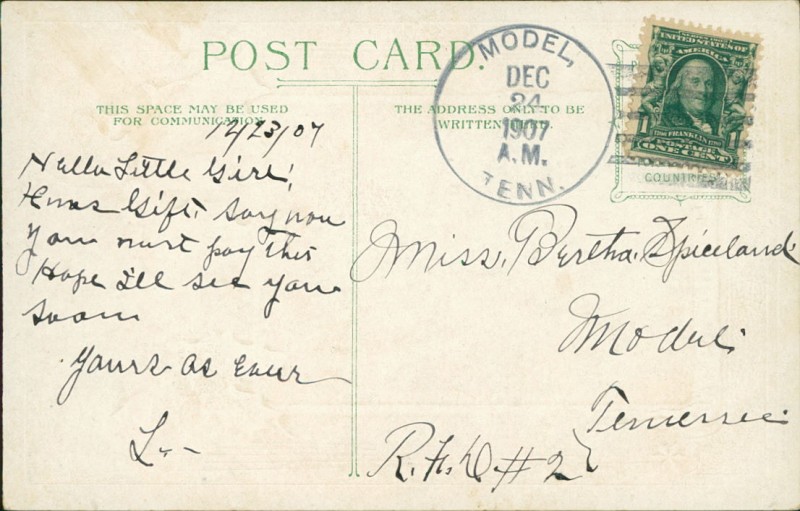 POST CARD.
THIS SPACE MAY BE USED
FOR COMMUNICATION
THE ADDRESS ONLY TO BE
WRITTEN HERE.
MODEL,
DEC
24
1907
A.M.
TENN.
UNITED STATES OF
AMERICA
FRANKLIN
POSTAGE
1 ONE CENT 1
COUNTRIES
12/23/07
Hello Little Girl!
Xmas Gift. Say now
you must pay this
Hope I'll see you
soon
Yours as ever
L--
Miss. Bertha Spiceland
Model.
Tennessee
R.F.D #2